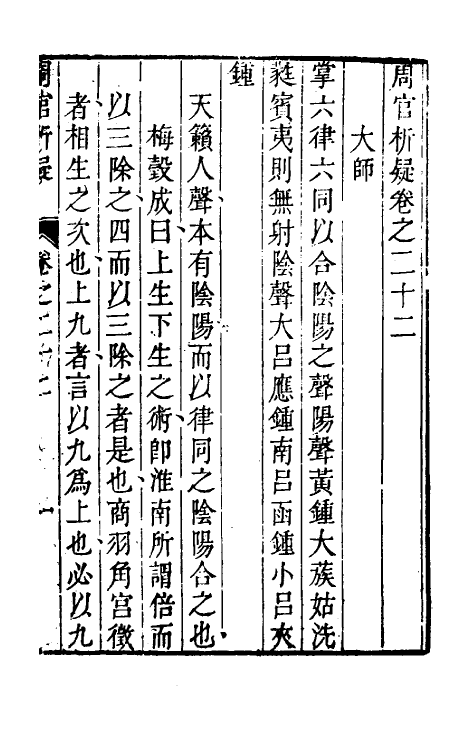 周官析疑卷之二十二
大師
掌六律六同以合陰陽之聲陽聲黃鍾大蔟姑洗
蕤賓夷則無射陰聲大呂應鍾南呂函鍾小呂夾
鍾
天籟人聲本有陰陽而以律同之陰陽合之也
梅瑴成曰上生下生之術卽淮南所謂倍而
以三除之四而以三除之者是也商羽角宮徵
者相生之次也上九者言以九爲上也必以九
周官析疑
卷之二十二